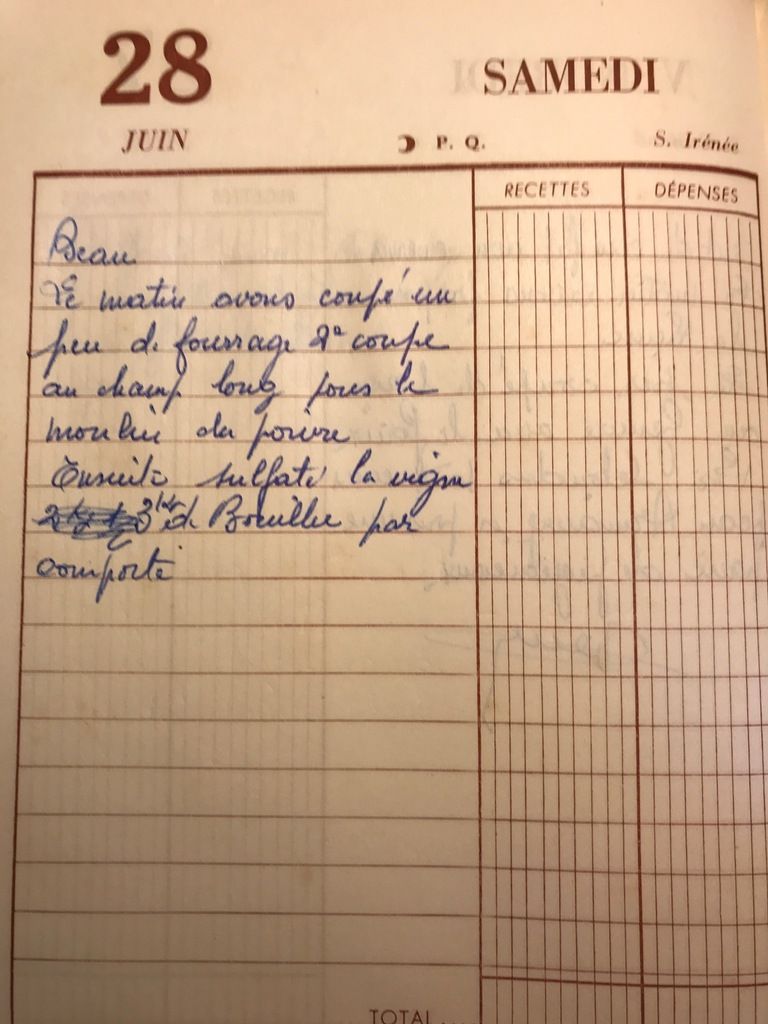 28
SAMEDI
JUIN
P. Q.
S. Irénée
RECETTES
DÉPENSES
Beau
Le matin avons coupé un
peu de fourrage 2e coupe
au champ long sous le
moulin du poivre
Ensuite sulfaté la vigne
de Bouillie par
comporte
TOTAL...